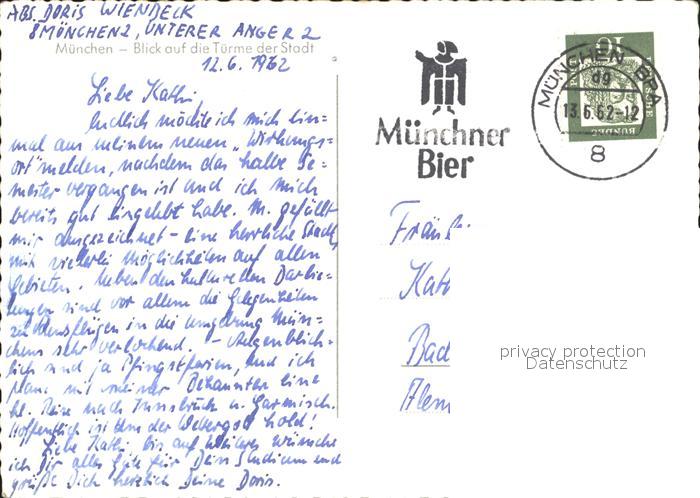 ABS. DORIS WIENDECK
8 MÜNCHEN 2, UNTERER ANGER 2
München – Blick auf die Türme der Stadt
12.6.1962
Liebe Kathi,
endlich möchte ich mich ein=
mal aus meinem neuen „Wirkungs=
ort" melden, nachdem das halbe Se=
mester vergangen ist und ich mich
bereits gut eingelebt habe. M. gefällt
mir ausgezeichnet – eine herrliche Stadt,
mit vielerlei Möglichkeiten auf allen
Gebieten. Neben den kulturellen Darbie=
tungen sind vor allem die Gelegenheiten
zu Ausflügen in die Umgebung Mün=
chens sehr verlockend. – Augenblick=
lich sind ja Pfingstferien, und ich
plane mit meiner Bekannten eine
kl. Reise nach Innsbruck u. Garmisch.
Hoffentlich ist uns der Wettergott hold!
Liebe Kathi, bis auf weiteres wünsche
ich Dir alles Gute für Dein Studium und
grüße Dich herzlich Deine Doris.
Münchner
Bier
MÜNCHEN BPA
dg
13.6.62-12
8
10
BUNDES
Fräul
Kath
Bad
privacy protection
Datenschutz